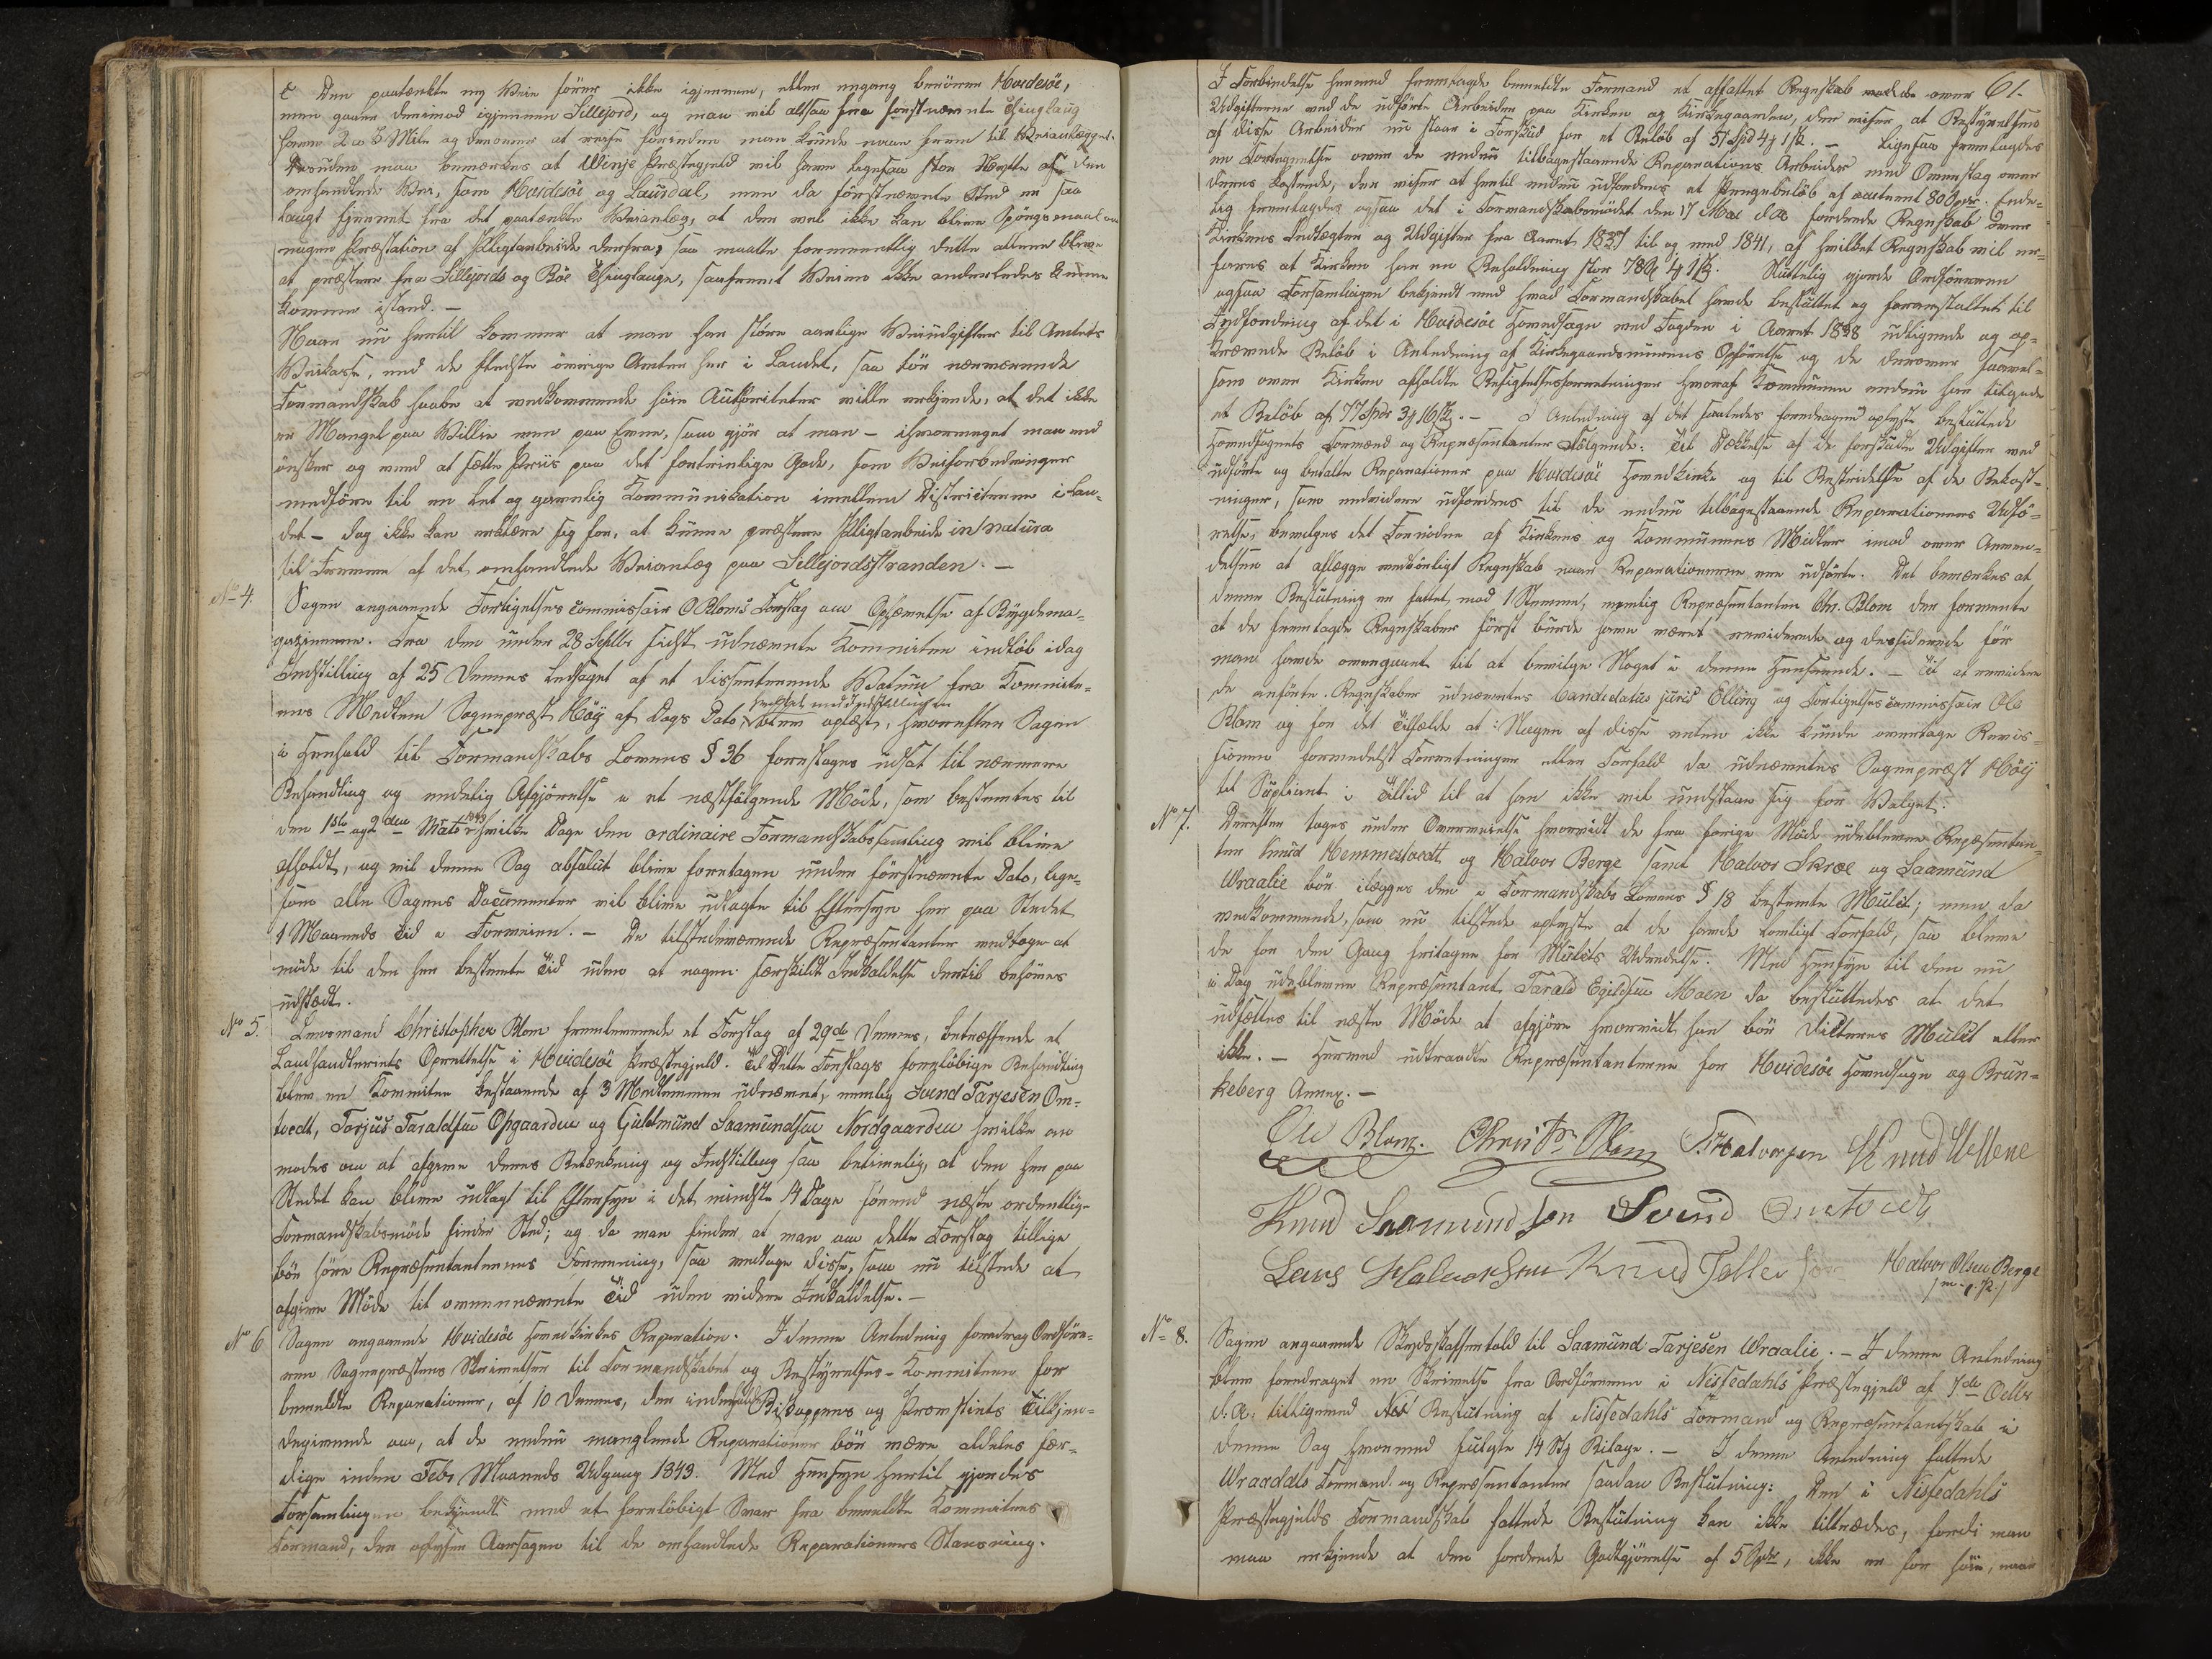 c Den paatænkte ny Veie fører ikke igjennem, eller engang berører Hvidesöe,
men gaaer derimod igjennem Sillejord, og man vil altsaa fra förstnævnte Thinglaug
have 2 a 3 Mile og derover at reise förend man kunde naae frem til Veianlægget.
Desuden maa bemærkes at Winje Præstegjeld vil have ligesaa stor Nytte af den
omhandlede Vei, som Hvidesöe og Laurdal, men da förstnævnte Sted er saa
langt fjernet fra det paatænkte Veianlæg, at der vel ikke kan blive Spörgsmaal om
nogen Præstation af Pligtarbeide derfra, saa maatte formeentlig dette allene blive
at præstere fra Sillejords og Böe Thinglauge, saafremt Veien ikke anderledes kunne
komme istand. –
Naar nu hertil kommer at man har större aarlige Veiudgifter til Amtets
Veikasse, end de fleste övrige Amter her i Landet, saa tör nærværende
Formandskab haabe at vedkommende höie Authoriteter ville erkjende, at det ikke
er Mangel paa Villie men paa Evne, som gjör at man – ihvormeget man end
önsker og veed at sætte Priis paa det fortrinlige Gode, som Veiforbedringer
medföre til en let og gavnlig Kommunikation imellem Districterne i Lan-
det – dog ikke kan erklære sig for, at kunne præstere Pligtarbeide in natura
til Fremme af det omhandlede Veianlæg paa Sillejordsstranden. –
No 4. Sagen angaaende Forligelsescommissair O Bloms Forslag om Ophævelse af Bygdema-
gazinerne. Fra den under 28 Septbr sidst udnævnte Kommitee indlöb idag
Indstilling af 25 dennes ledsaget af et dissenterende Votum fra Kommite-
ens Medlem Sognepræst Höÿ af Dags Dato, hvilket med Indstillingen blev oplæst, hvorefter Sagen
i Henhold til Formandskabs Lovens § 36 foreslages udsat til nærmere
Behandling og endelig Afgjörelse i et næstfölgende Möde, som bestemtes til
den 1ste og 2den Marts 1843 hvilke Dage den ordinaire Formandskabssamling vil blive
afholdt, og vil denne Sag absolut blive foretagen under förstnævnte Dato, lige-
som alle Sagens Documenter vil blive udlagte til Eftersyn her paa Stedet
1 Maaneds Tid i Forveien. – De tilstedeværende Repræsentanter vedtoge at
möde til den her bestemte Tid uden at nogen særskildt Indkaldelse dertil behöves
udstædt.
No 5. Lensmand Christopher Blom fremleverede et Forslag af 29de dennes, betræffende et
Landhandleries Oprettelse i Hvidesöe Præstegjeld. Til dette Forslags foreløbige Behandling
blev en Kommitee bestaaende af 3 Medlemmer udnævnt, nemlig Svend Tarjesen Om-
tvedt, Torjus Taraldsen Opgaarden og Guldmund Saamundsen Nordgaarden hvilke an-
modes om at afgive deres Betænkning og Indstilling saa betimelig, at den her paa
Stedet kan blive udlagt til Eftersyn i det mindste 14 Dage förend næste ordentlig-
Formandskabsmöde finder Sted; og da man finder, at man om dette Forslag tillige
bör höre Repræsentanternes Formening, saa vedtoge disse, som nu tilstede at
afgive Möde til ovennævnte Tid uden videre Indkaldelse. –
No 6 Sagen angaaende Hvidesöe Hovedkirkes Reparation. I denne Anledning foredrog Ordföre-
ren Sognepræstens Skrivelse til Formandskabet og Bestyrelses-Kommiteen for
bemeldte Reparationer, af 10 dennes, der indeholder Biskoppens og Provstiets Tilkjen-
degivende om, at de endnu manglende Reparationer bör være aldeles fær-
dige inden Febr Maaneds Udgang 1843. Med Hensyn hertil gjordes
Forsamlingen bekjendt med et foreløbigt Svar fra bemeldte Kommitees
Formand, der oplyser Aarsagen til de omhandlede Reparationers Standsning.
61.
I Forbindelse hermed fremlagde bemeldte Formand et affattet Regnskab over
Udgifterne ved de udförte Arbeider paa Kirken og Kirkegaarden, der viser, at Bestyrelsens
af disse Arbeider nu staar i Forskud for et Belöb af 51 Spd 4 ƴ 1 ß. – Ligesaa fremlagdes
en Fortegnelse over de endnu tilbagestaaende Reparations Arbeider med Overslag over
deres Kostende, der viser at hertil endnu udfordres et Pengebelöb af omtrent 80 Spdr. Ende-
lig fremlagdes ogsaa det i Formandskabsmödet den 17 Mai d. A. fordrede Regnskab over
Kirkens Indtægter og Udgifter fra Aaret 1837 til og med 1841, af hvilket Regnskab vil er-
fares at Kirken har en Beholdning stor 78 Spd 4 ƴ 1 ß. Sluttelig gjorde Ordföreren
ogsaa Forsamlingen bekjendt med hvad Formandskabet havde besluttet og foranstaltet til
Indfordring af det i Hvidesöe Hovedsogn ved Fogden i Aaret 1838 udlignede og op-
krævede Belöb i Anledning af Kirkegaardsmurens Opförelse og de derover saavel-
som over Kirken afholdte Besigtelsesforretninger hvoraf Kommunen endnu har tilgode
et Belöb af 77 Spdr 3 ƴ 16 ß. – I Anledning af det saaledes foredragne og oplyste besluttede
Hovedsognets Formænd og Repræsentanter Fölgende: Til Dækkelse af de forskudte Udgifter ved
udförte og betalte Reparationer paa Hvidesöe Hovedkirke og til Bestridelse af de Bekost-
ninger, som endvidere udfordres til de endnu tilbagestaaende Reparationers Udfö-
relse, bevilges det Fornödne af Kirkens og Kommunens Midler imod over Anven-
delsen at aflægge vedbörligt Regnskab naar Reparationerne ere udförte. Det bemærkes at
denne Beslutning er fattet, mod 1 Stemme, nemlig Repræsentanten Chr. Blom der formente
at de fremlagde Regnskaber först burde have været reviderede og desiderede för
man havde overgaaet til at bevilge Noget i denne Henseende. – Til at revidere
de anförte Regnskaber udnævntes Candidatus juris Elling og Forligelsescommissair Ole
Blom og for det Tilfælde at Nogen af disse enten ikke kunde overtage Revis-
sionen formedelst Forretninger eller Forfald da udnævntes Sognepræst Höÿ
til Supleant i Tillid til at han ikke vil undslaae sig for Valget.
No 7. Derefter toges under Overveielse hvorvidt de fra forrige Möde udeblevne Repræsentan-
ter Knud Hemmestvedt og Halvor Berge samt Halvor Skræe og Saamund
Wraalie bör ilægges den i Formandskabs Lovens § 18 bestemte Mulct; men da
vedkommende, som nu tilstede oplyste at de havde lovligt Forfald, saa bleve
de for den Gang fritagne for Mulcts Udredelse. Med Hensyn til den nu
i Dag udeblevne Repræsentant Tarald Egildsen Moen da besluttedes at det
udsættes til næste Möde at afgjöre hvorvidt han bör dicteres Mulct eller
ikke. – Hermed udtraadte Repræsentanterne for Hvidesöe Hovedsogn og Brun-
keberg Annex. –
Ole Blom. Christr Blom T. Halvorsen Knud
Knud Saamundson Svend Omtvedt
Lars Halvorsen Knud Tollefson Halvor Olsen Berge
m. p. P.
No 8. Sagen angaaende Skydsskaffertold til Saamund Tarjesen Wraalie. – I denne Anledning
blev foredraget en Skrivelse fra Ordföreren i Nissedahls Præstegjeld af 7de Octbr
d. A. tilligemed Beslutning af Nissedahls Formand og Repræsentantskab i
denne Sag hvormed fulgte 14 St Bilage. – I denne Anledning fattede
Wraadals Formænd og Repræsentanter saadan Beslutning: Den i Nissedahls
Præstegjelds Formandskab fattede Beslutning kan ikke tiltrædes, fordi man
maa erkjende at den fordrede Godtgjörelse af 5 Spdr, ikke er for höi, naar